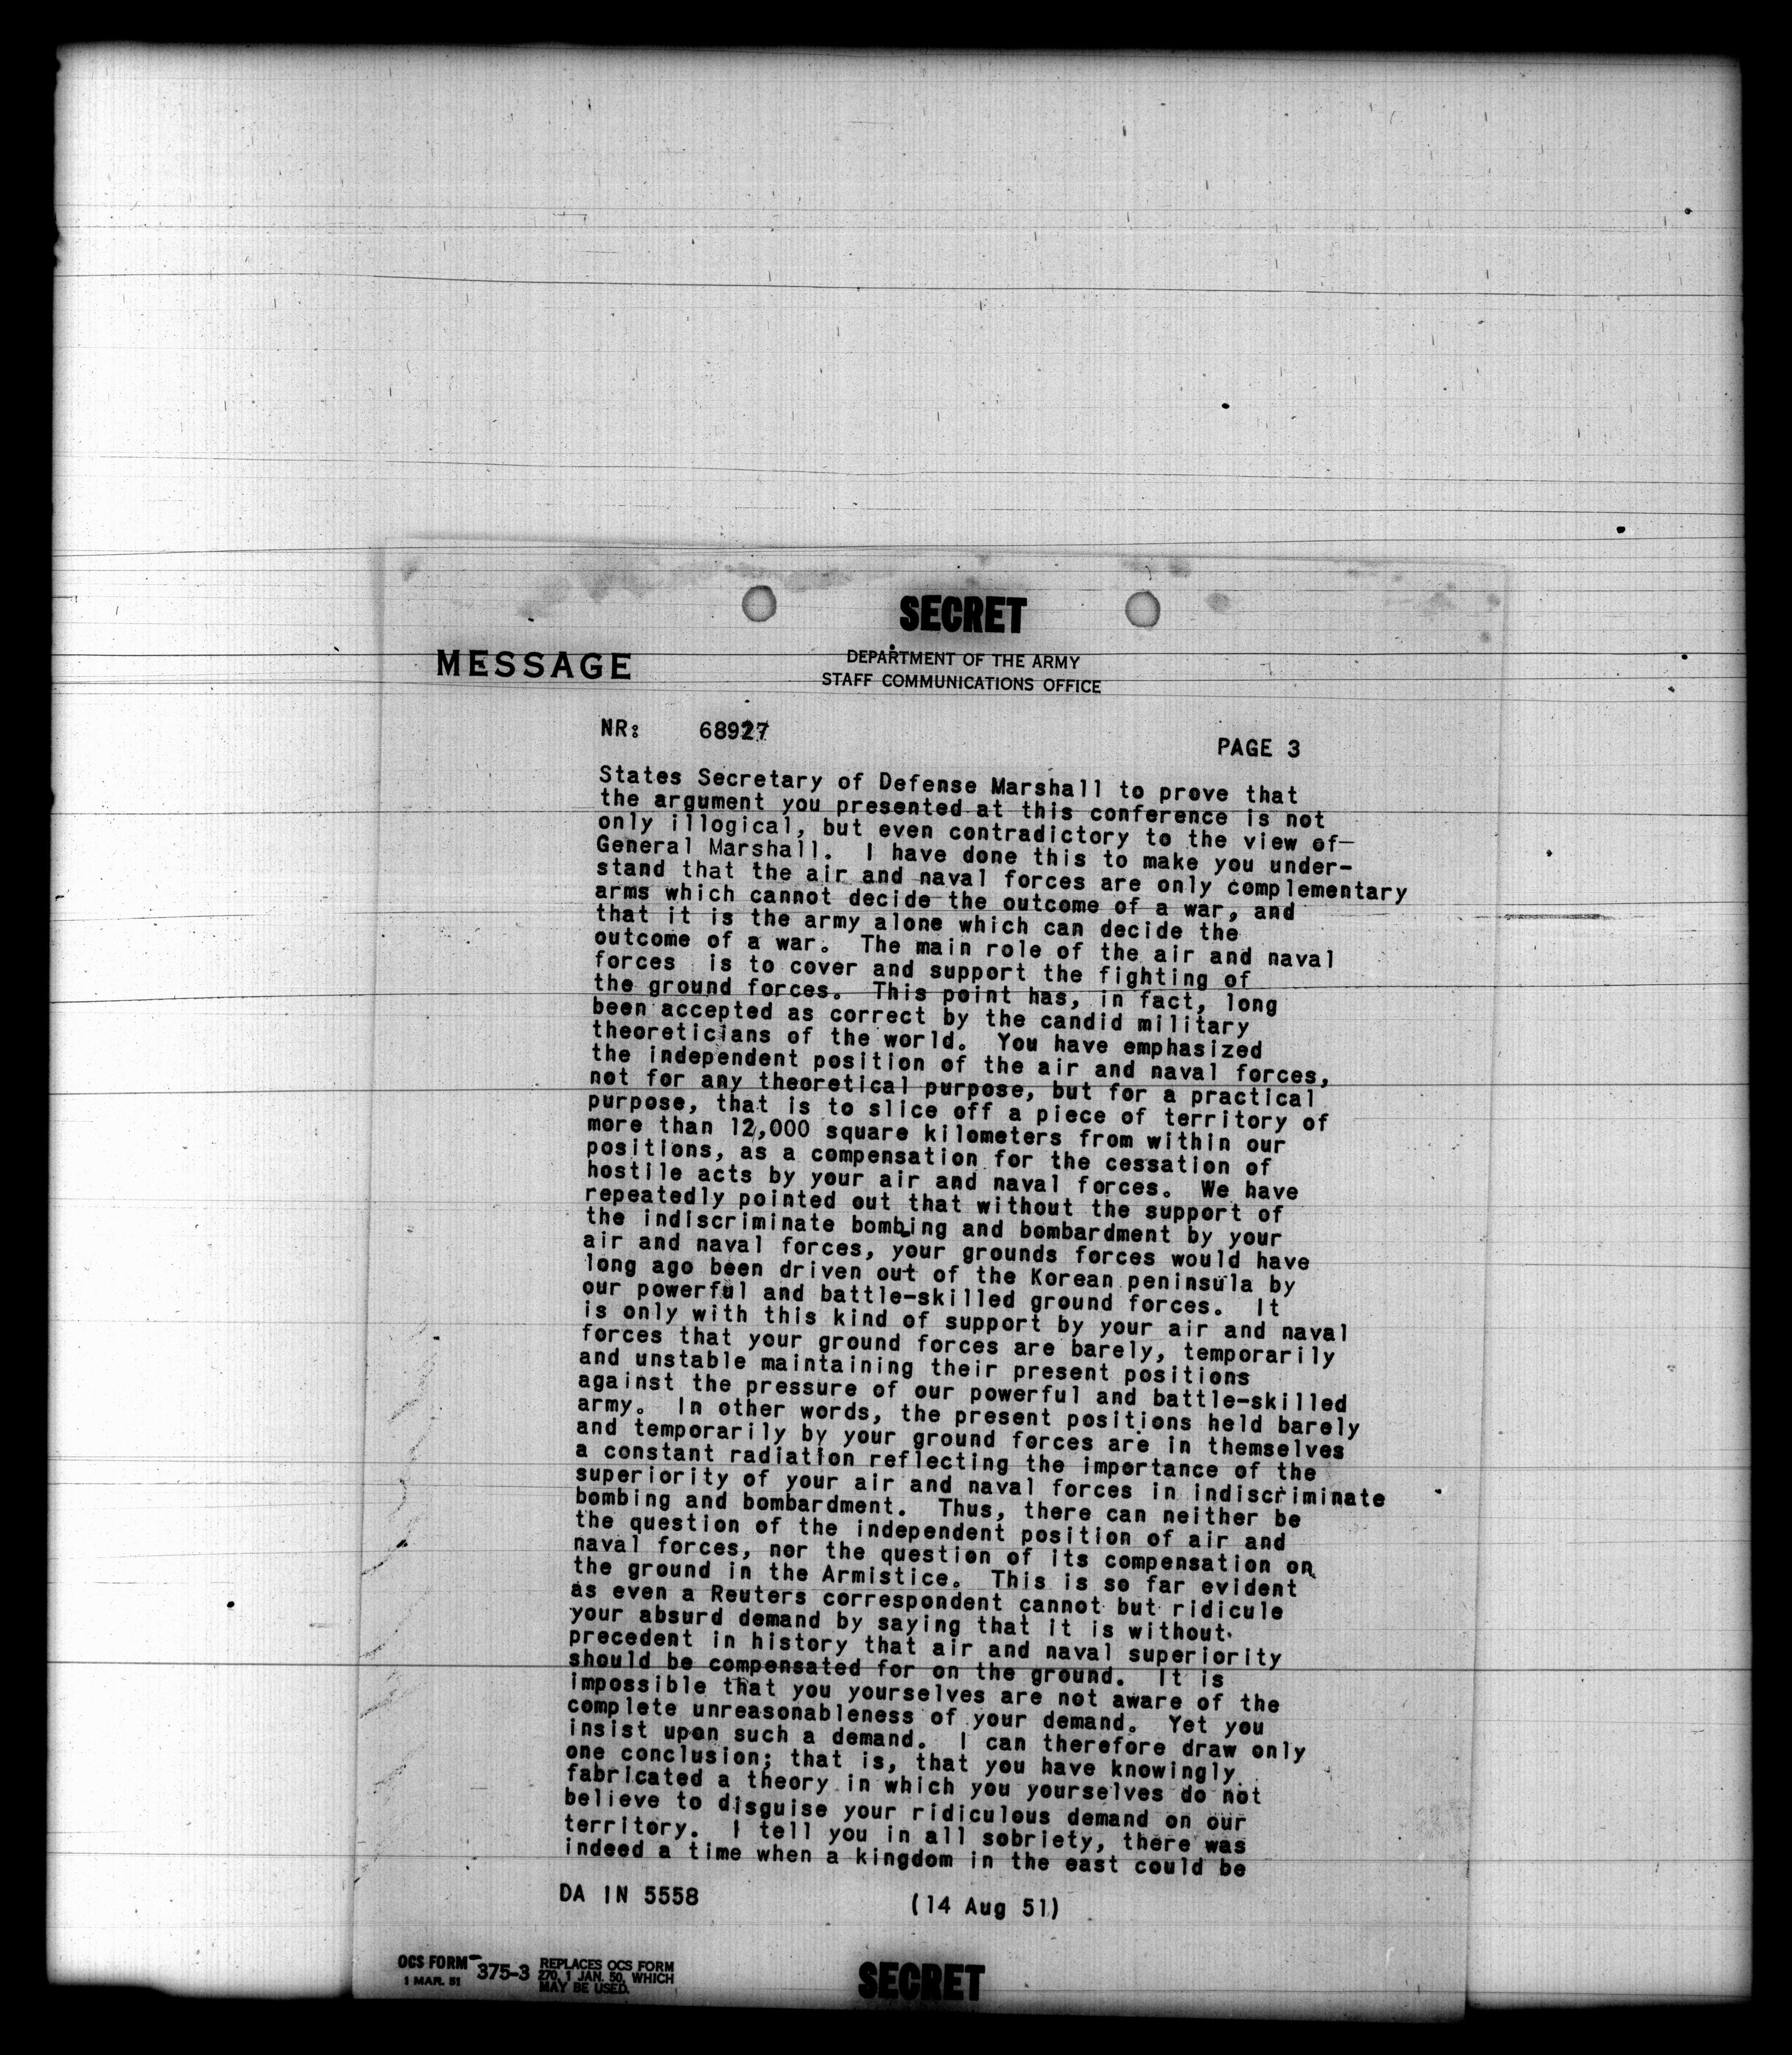 SECRET
MESSAGE
DEPARTMENT OF THE ARMY
STAFF COMMUNICATIONS OFFICE
NR: 68927
PAGE 3
States Secretary of Defense Marshall to prove that
the argument you presented at this conference is not
only illogical, but even contradictory to the view of—
General Marshall. I have done this to make you under-
stand that the air and naval forces are only complementary
arms which cannot decide the outcome of a war, and
that it is the army alone which can decide the
outcome of a war. The main role of the air and naval
forces is to cover and support the fighting of
the ground forces. This point has, in fact, long
been accepted as correct by the candid military
theoreticians of the world. You have emphasized
the independent position of the air and naval forces,
not for any theoretical purpose, but for a practical
purpose, that is to slice off a piece of territory of
more than 12,000 square kilometers from within our
positions, as a compensation for the cessation of
hostile acts by your air and naval forces. We have
repeatedly pointed out that without the support of
the indiscriminate bombing and bombardment by your
air and naval forces, your grounds forces would have
long ago been driven out of the Korean peninsula by
our powerful and battle-skilled ground forces. It
is only with this kind of support by your air and naval
forces that your ground forces are barely, temporarily
and unstable maintaining their present positions
against the pressure of our powerful and battle-skilled
army. In other words, the present positions held barely
and temporarily by your ground forces are in themselves
a constant radiation reflecting the importance of the
superiority of your air and naval forces in indiscriminate
bombing and bombardment. Thus, there can neither be
the question of the independent position of air and
naval forces, nor the question of its compensation on
the ground in the Armistice. This is so far evident
as even a Reuters correspondent cannot but ridicule
your absurd demand by saying that it is without
precedent in history that air and naval superiority
should be compensated for on the ground. It is
impossible that you yourselves are not aware of the
complete unreasonableness of your demand. Yet you
insist upon such a demand. I can therefore draw only
one conclusion; that is, that you have knowingly
fabricated a theory in which you yourselves do not
believe to disguise your ridiculous demand on our
territory. I tell you in all sobriety, there was
indeed a time when a kingdom in the east could be
DA IN 5558 (14 Aug 51)
OCS FORM 375-3 REPLACES OCS FORM
1 MAR. 51 270, 1 JAN. 50, WHICH
MAY BE USED.
SECRET